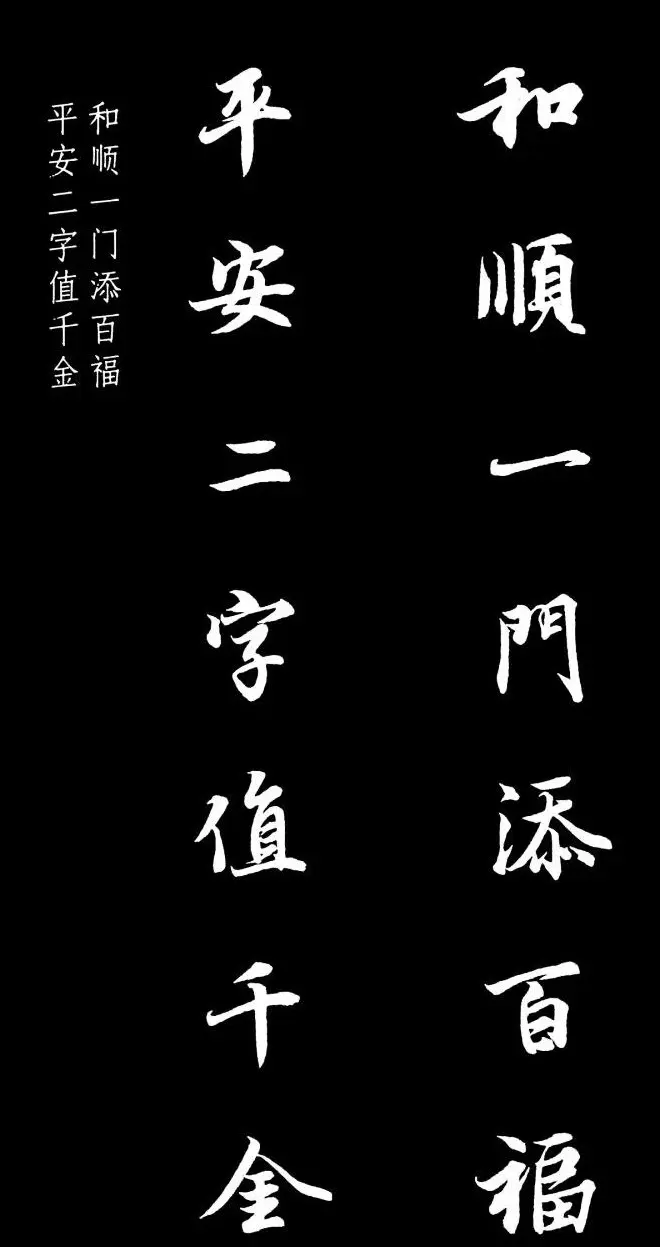 和順一門添百福
平安二字值千金
和顺一门添百福
平安二字值千金